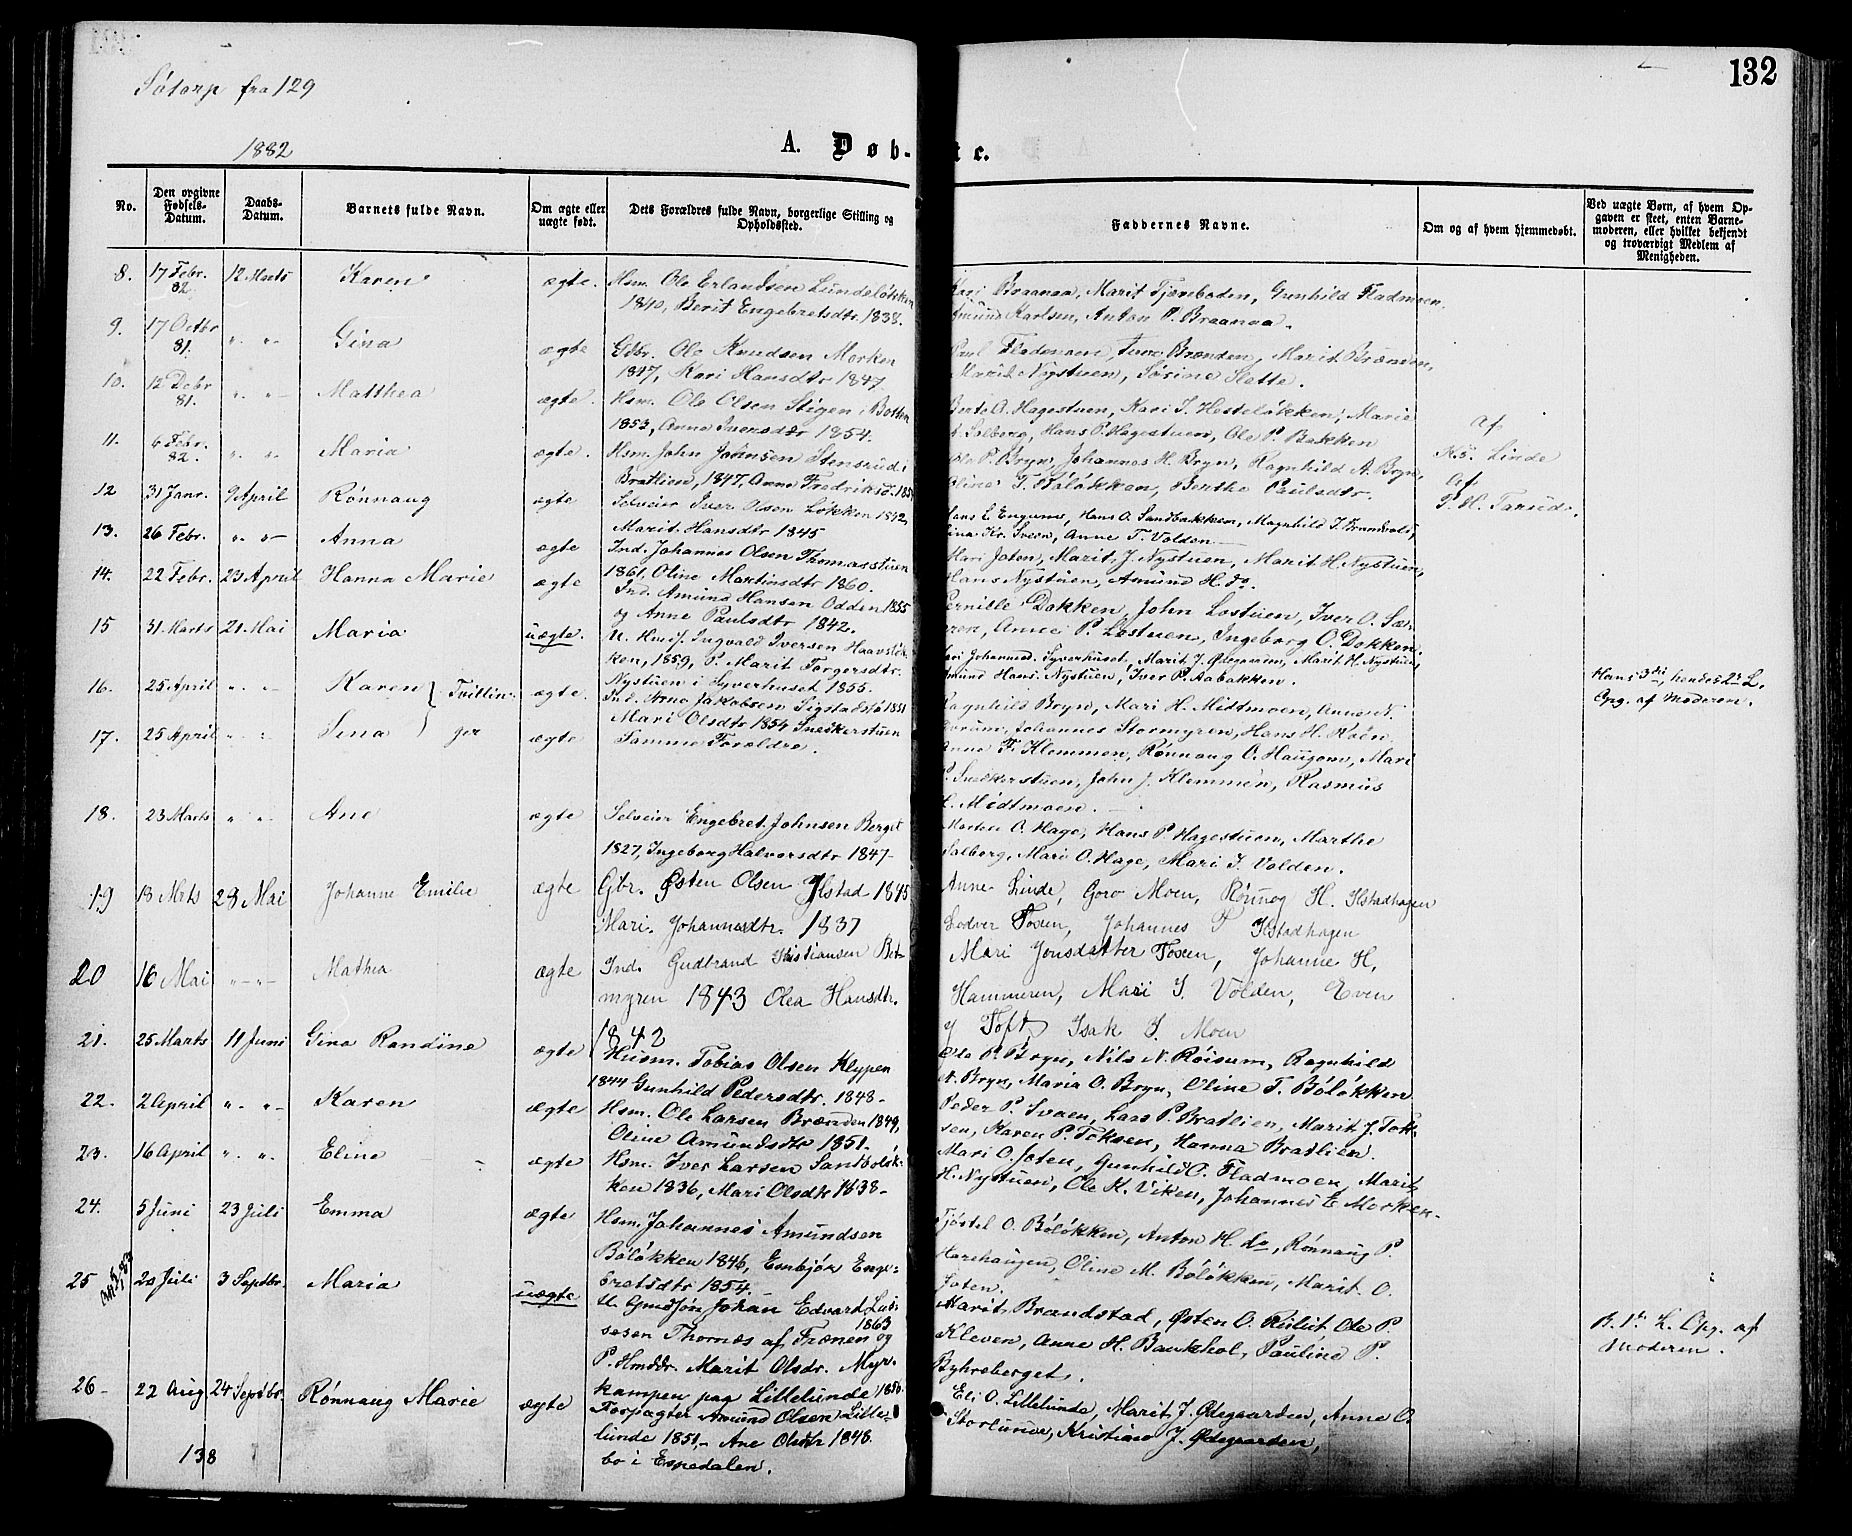 132
Sótorp fra 129
1882
A. Døb- te.
No.
Den opgivne Fødsels-Datum.
Daabs-Datum.
Barnets fulde Navn.
Om ægte eller uægte født.
Dets Forældres fulde Navn, borgerlige Stilling og Opholdssted.
Faddernes Navne.
Om og af hvem hjemmedøbt.
Ved uægte Børn, af hvem Opgaven er skeet, enten Barnemoderen, eller hvilket bekjendt og troværdigt Medlem af Menigheden.
8. 17 Febr. 82. 12 Marts Karen ægte.
Hsm. Ole Erlandsen Lundeløkken
1840, Berit Engebretsdtr. 1838.
Braanaa, Marit Tjærnboden, Gunhild Fladmoen
Karlsen, Anton P. Braanaa.
9. 17 Octbr 81. " " Gina ægte
Gdbr. Ole Knudsen Morken
1847, Kari Hansdtr 1847.
Fladmoen, Brænden, Marit Brænden,
Marit Nystuen, Sørine Slette.
10. 12 Debr 81. " " Matthea ægte.
Hsm. Ole Olsen Stigen, Botten
1853, Anne Iversdtr 1854.
Berte O. Hagestuen, Kari S. Hesteløkken, Marie
Solberg, Hans P. Hagestuen, Ole P. Bakken
11. 6 Febr. 82. " " Maria ægte.
Hsm. John Johnsen Stensrud i
Bratlien, 1847, Anne Fredriksd.
Ole P. Bryn, Johannes H. Bryn, Ragnhild A. Bryn,
Oline T. Bóløkken, Berthe Paulsdtr.
af
K.S. Linde
12 31 Janr. 9 April Rønnaug ægte
Selveier Iver Olsen Løkken 1842,
Marit Hansdtr 1845
Hans E. Engum, Hans O. Sandbakken, Magnhild J. Brandvold,
Kr. Sveen, Anne T. Volden
af
P. H. Tarud.
13. 26 Febr. " " Anna ægte
Ind. Johannes Olsen Thomasstuen
1861, Oline Martinsdtr 1860.
Mari Joten, Marit J. Nystuen, Marit H. Nystuen,
Hans Nystuen, Amund H. do.
14. 22 Febr. 23 April Hanna Marie ægte
Ind. Amund Hansen Odden 1855
og Anne Paulsdtr 1842.
Pernille Dokken, John Lostuen, Iver O. Sæ-
Anne P. Lostuen, Ingeborg O. Dokken.
15 31 Marts 21 Mai Maria uægte.
U. Hmd. Ingvald Iversen Haavsløk-
ken, 1859, P. Marit Torgersdtr.
Nystuen i Syverhuset 1855.
Johannesd. Syverhuset, Marit J. Ødegaarden, Marit H. Nystuen,
Hans. Nystuen, Iver P. Aabakken.
Hans 3di, hendes 2t L.
Opg. af Moderen.
16. 25 April " " Karen } Tvillin- ægte.
Ind. Arne Jakobsen Sigstadstø 1851
Mari Olsdtr 1854 Snedkerstuen
Ragnhild Bryn, Mari H. Midtmoen, Anne N.
Johannes Stormyren, Hans H. Roen.
17. 25 April " " Sina } ger ægte
Samme Forældre.
Anne F. Klemmen, Rønnaug O. Haugom, Mari
Snedkerstuen, John J. Klemmen, Rasmus
Midtmoen.
18. 23 Marts " " Ane ægte
Selveier Engebret Johnsen Berget
1827, Ingeborg Halvorsdtr 1847-
Morten O. Hage, Hans P. Hagestuen, Marthe
Solberg, Mari O. Hage, Mari I. Volden.
19 13 Mrts 28 Mai Johanne Emilie ægte
Gbr. Østen Olsen Ilstad 1845
Mari. Johannesdtr. 1837
Anne Linde, Goro Moen, Rønnog H. Ilstadhagen
Ludver Tosen, Johannes P Ilstadhagen
20 16 Mai " " Mathea ægte
Ind. Gudbrand Kristiansen Bot-
myren 1843 Olea Hansdtr.
1842
Mari Jonsdatter Tosen, Johanne H.
Hammeren, Mari I. Volden, Even
J Toft, Isak I. Moen
21. 25 Marts 11 Juni Gina Randine ægte
Husm. Tobias Olsen Klypen
1844 Gunhild Pedersdtr. 1848-
Ole P. Bryn, Nils N. Røisum, Ragnhild
N. Bryn, Maria O. Bryn, Oline T. Bóløkken
22. 2 April " " Karen ægte
Hsm. Ole Larsen Brænden 1849,
Oline Amundsdtr 1851.
Peder P. Svaen, Lars P. Bratlien, Marit J. Tok-
sen, Karen P. Toksen, Hanna Bratlien.
23. 16 April " " Eline ægte
Hsm. Iver Larsen Sandbolok-
ken 1836, Mari Olsdtr 1838-
Mari O. Joten, Gunhild O. Fladmoen, Marit
H. Nystuen, Ole K. Viken, Johannes E. Morken.
24. 5 Juni 23 Juli Emma ægte
Hsm. Johannes Amundsen
Bóløkken 1846, Embjør Enge-
bretsdtr 1854.
Tjøstel O. Bóløkken, Anton H. do, Rønnaug P.
Harehaugen, Oline M. Bóløkken, Marit O.
Joten.
25 20 Juli 3 Septbr. Maria uægte
U. Gmdsøn Johan Edvard Lui-
sesen Thornæs af Frænen og 1863
P. Hmddr. Marit Olsdr. Myr-
kampen paa Lillelunde 1850.
Marit Brandstad, Østen O. Ruhut, Ole P.
Kleven, Anne H. Baukhol, Pauline P.
Byhreberget.
B. 1te L. Opg. af
Moderen.
26- 22 Aug 24 Septbr. Rønnaug Marie ægte
Forpagter Amund Olsen Lille-
lunde 1851,- Ane Olsdtr 1848.
bo i Espedalen.
Eli O. Lillelunde, Marit J. Ødegaarden, Anne O.
Storlunde, Kristine J. Ødegaarden,
138